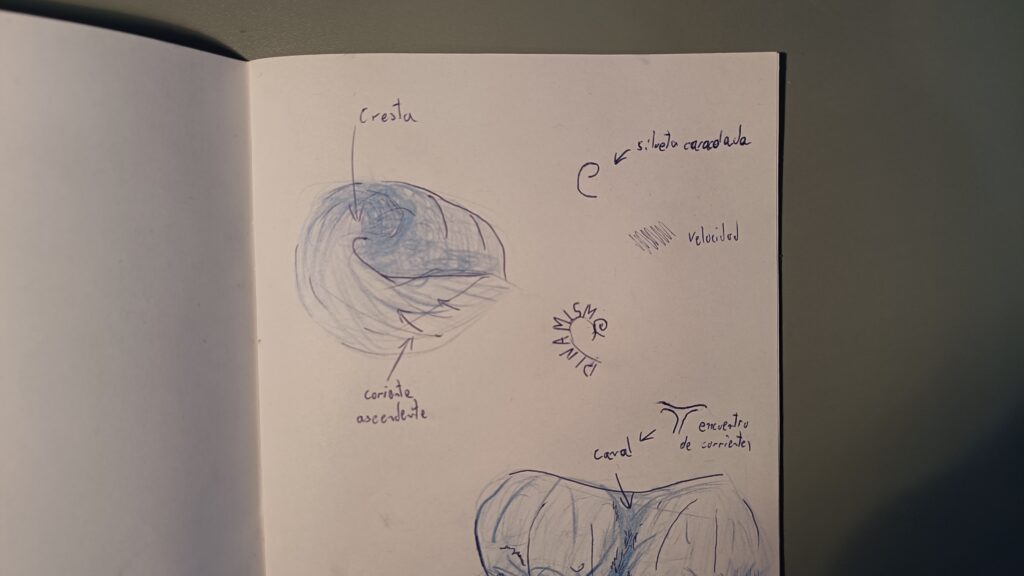 Cresta
silueta caracolada
velocidad
DINAMISMO
coriente
ascendente
encuentro
de corrientes
canal